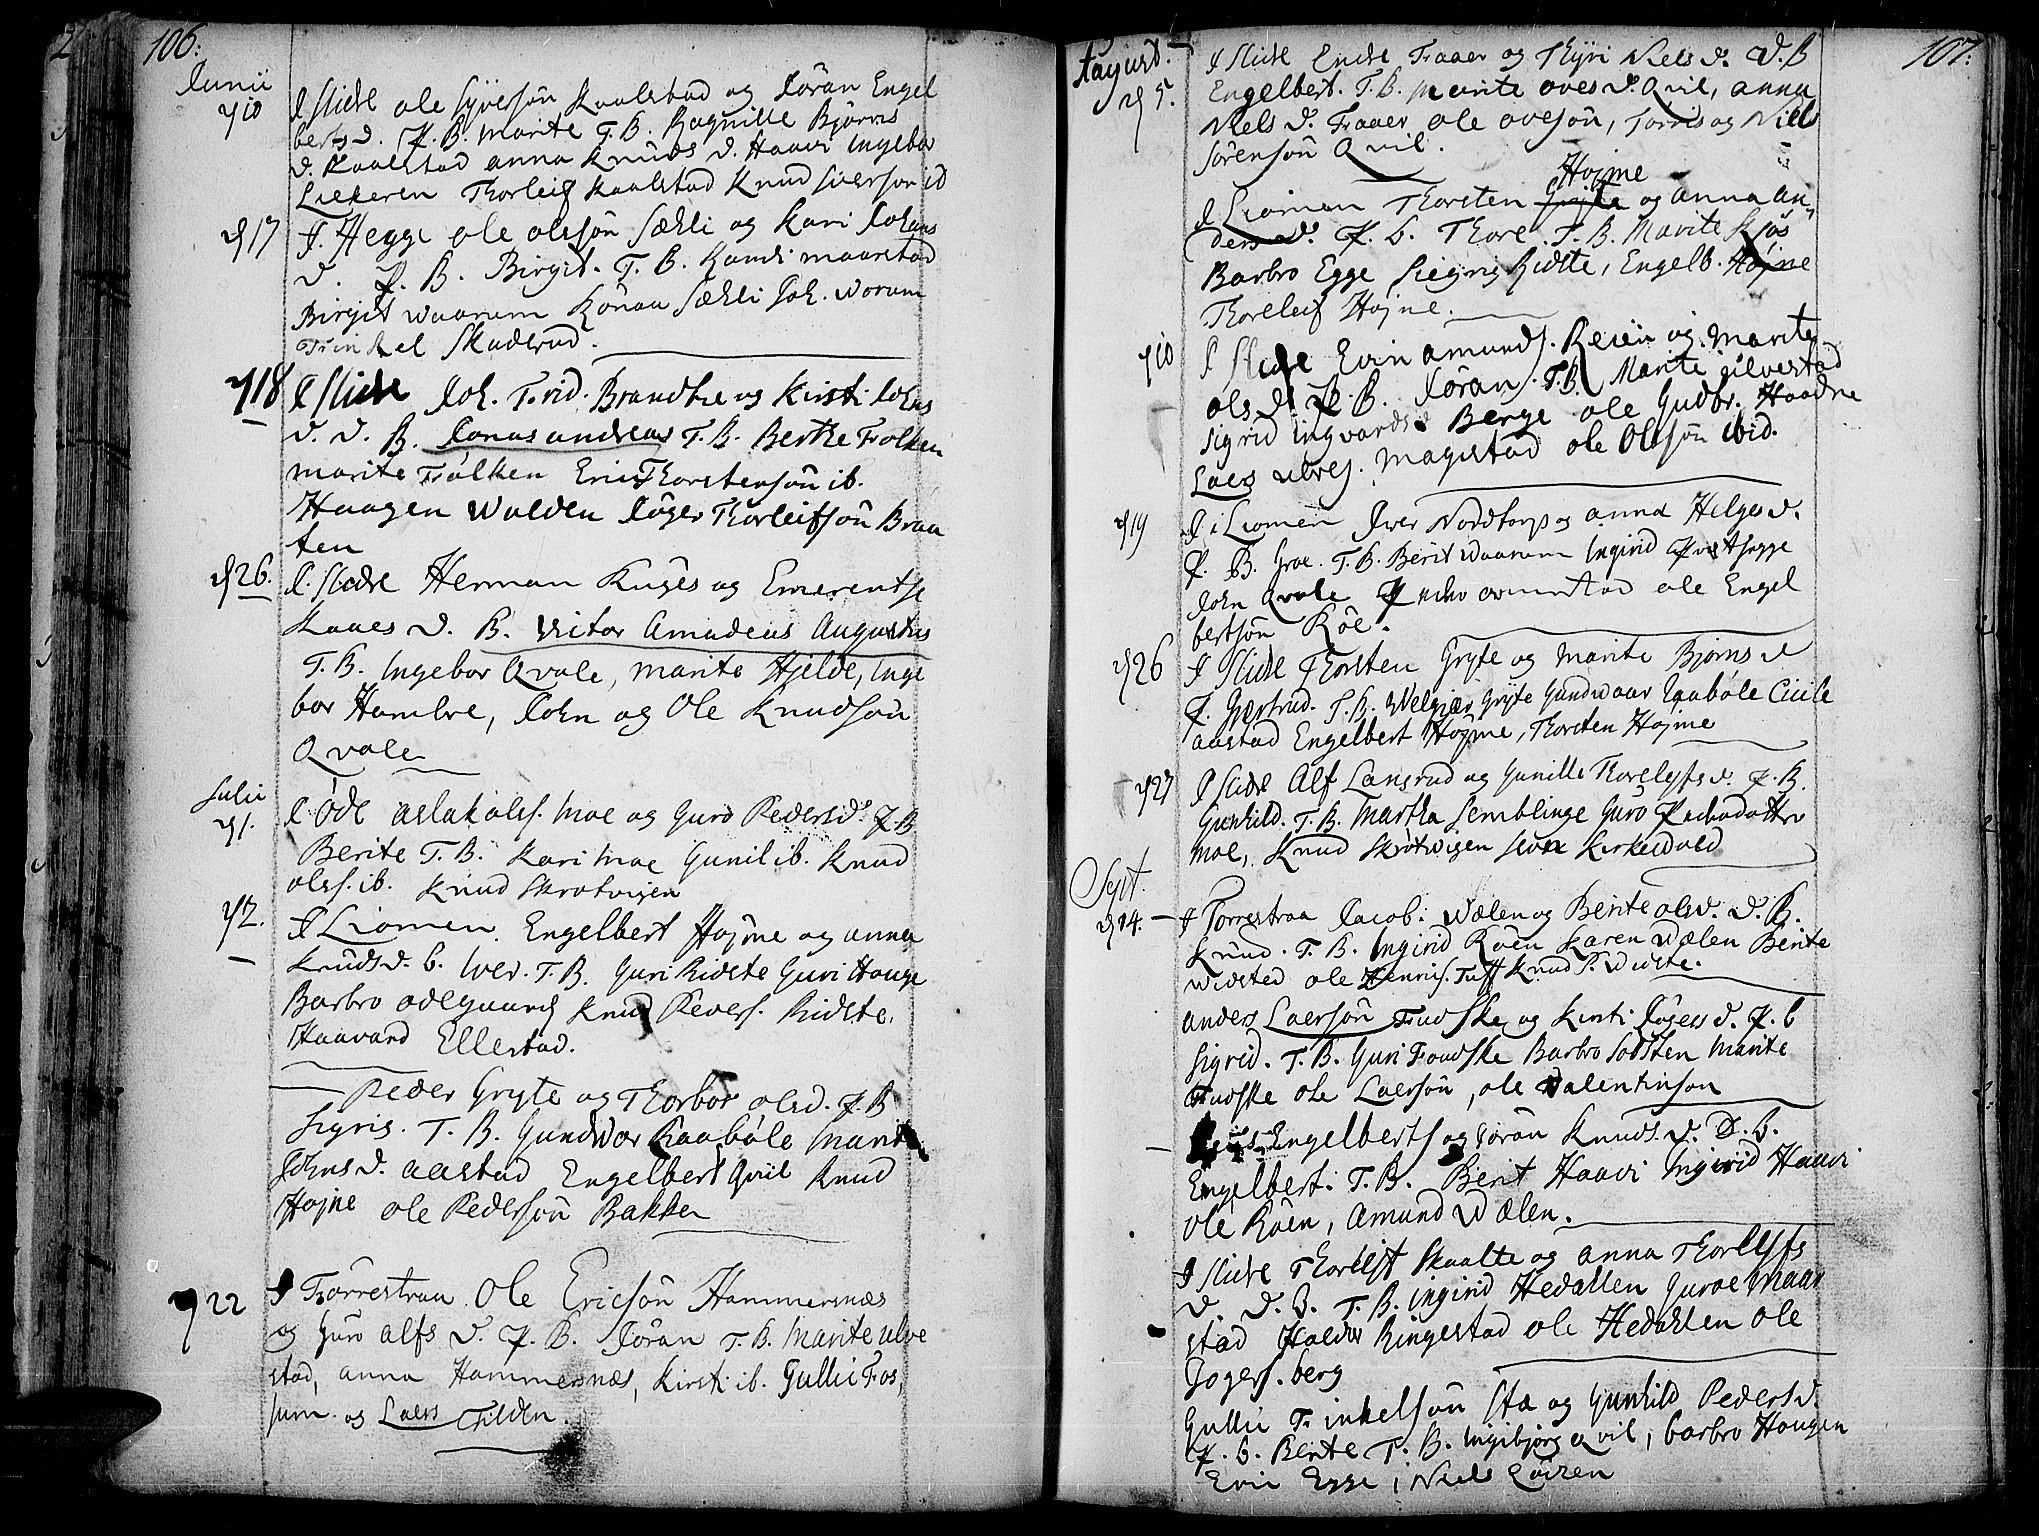 106:
Junii
d 10 J Slidre ole Syversön Kaalstad og Jöran Engel
berts d. P. B. Marite T. B. Ragnille Björns
d. Kaalstad anna Knuds d. Haavi Ingebor
Liekeren Thorleif Kaalstad Knud Siverson ib
d 17 J. Hegge ole olssön Sæhli og Kari Johans
d. P. B. Birgit. T. B. Randi maarstad
Birgit waarum Rönaa Sæhli Joh. worum
Trinkel Skuderud.
d 18 J Slidre Joh. Frid. Brandthe og Kirsti Johns
d. d. B. Jonas andreas T. B. Berthe Folken
marite Folken Eric Thorstensön ib.
Haagen Walden Joger Thorleifsön Braa
ten
d 26. J. Slidre Herman Ruges og Emerentse
Kaaes d. B. Victor Amadeus Augustus
T. B. Ingebor Qvale, marite Hjelde, Inge
bor Hambre, John og Ole Knudsön
Qvale
Julii
d 1. J. Öde aslak olss. moe og Guro Peders d. P B
Berite T. B. Kari moe Gunil ib. Knud
olss. ib. Knud Skrotvigen
d 2. J Liomen Engelbert Höjme og anna
Knuds d. b. Iver. T. B. Guri Ridste Guri Hauge
Barbro ödegaard Knud Peders. Ridste,
Haavard Ellestad.
Peder Gryte og Thorbor ols d. P. B
Sigris. T. B. Gundvor Raaböle Marit
Johns d. aastad Engelbert Qvil Knud
Höjne ole Pedersön Bakken
d 22 J Förrestraa Ole Ericsön Hammersnæs
og Guro alfs d. P. B. Jöran T. B. Marite ulve
stad, anna Hammersnæs, Kirsti ib. Gullic Fos,
sum og Laers Tilden.
107:
August.
d 5. J Slidre Endre Fraaer og Thyri Niels d. d. B
Engelbert. T. B. Marite oves d. Qvil, anna
Niels d. Fraaer ole ovesön, Torris og Niels
Sörensön Qvil.
Höjme
J Liomen Thorsten Gryte og anna an,
ders d. P. b. Thore. T. B. Marite Kjös
Barbro Egge Siegrig Ridste, Engelb. Höjne
Thorleif Höjne.
d 10 J Slidre Evin amunds. Reien og Marite
ols d. P. B. Jöran. T. B. Marite ulvestad
Sigrid Ingvards d Berge ole Gudbr. Haadne
Laers ulves. Magistad ole Olssön ibid.
d 19 J Liomen Iver Nordtorp og anna Helges d.
P. B. Groe. T. B. Berit Waarum Ingrid Qvithegge
John Qvale ole Engel
bertsön Röe.
d 26 J Slidre Thorsten Gryte og Marite Björns d
P. Gjertrud. T. B. Welgjær Gryte Gundwaar Raaböle Cicile
aastad Engelbert Höjme, Thorsten Höjme
d 27 J Slidre Alf Lansrud og Gunille Thorleifs d. P. B.
Gunhild. T. B. Martha Semblinge Guro
moe, Knud Skrotwigen Kirkewold
Sept.
d 14. J Förrestraa Jacob Wælen og Berite ols d. d. B.
Knud. T. B. Ingrid Röen Karen Wælen Berite
Widsted ole Henrics. Tuff Knud P. Widste.
anders Laersön Fudske og Kirsti Jogers d. P. b
Sigrid. T. B. Guri Fudske Barbro Lobsten Marite
Fudske ole Laersön, ole Walentinsön
Engelberts og Jöran Knuds d. D. b.
Engelbert. T. B. Berit Haavi Ingrid Haavi
ole Röen, Amund Wælen.
J Slidre Thorleif Skaalte og anna Thorleifs
d. d. B. T. B. Ingrid Hedallen Guroe Maar
stad Haldor Ringestad ole Hedahlen ole
Jogers. berg
Gullic Tinkelsön Sta og Gunhild Peders d.
P. b. Berite T. B. Ingebjörg Qvil, barbro Haugen
Evin Egge, Niels